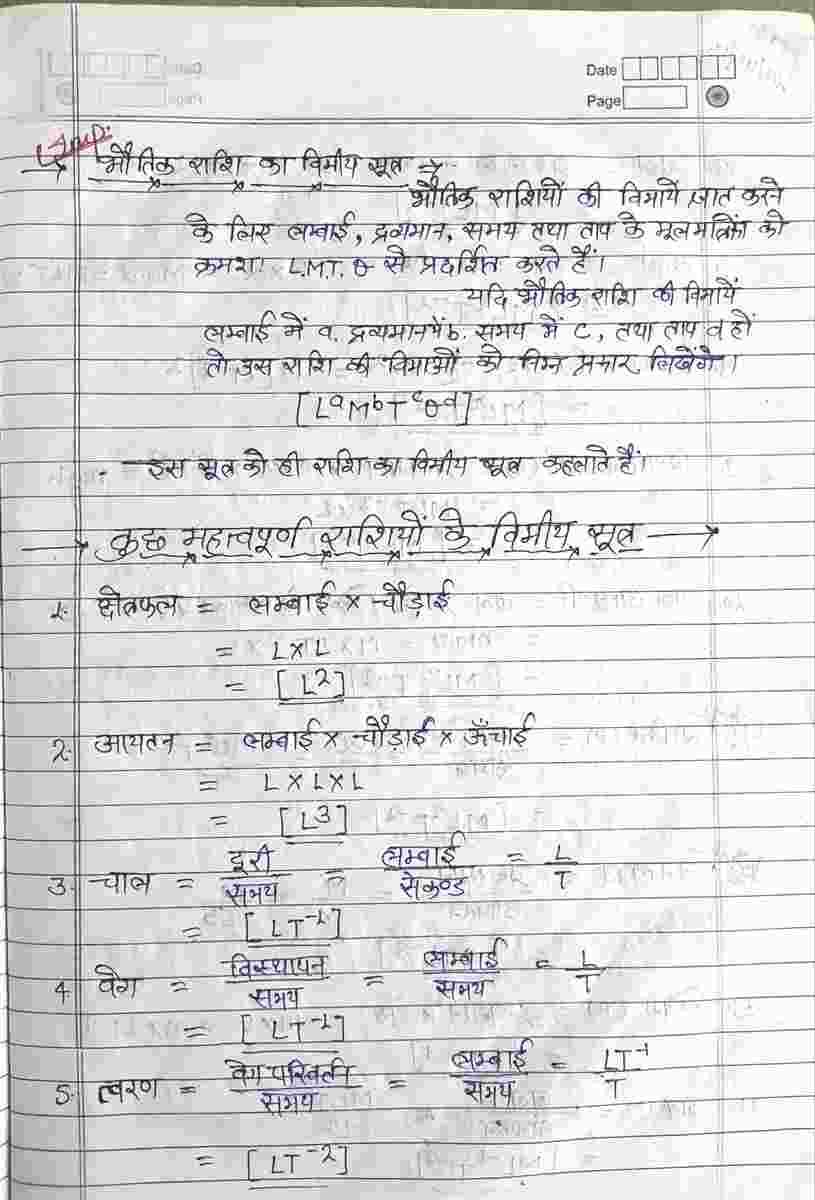 Date
Page
Imp:
→ भौतिक राशि का विमीय सूत्र ⇒
भौतिक राशियों की विमायें ज्ञात करने
के लिए लम्बाई, द्रव्यमान, समय तथा ताप के मूल मात्रकों को
क्रमशः L.M.T. θ से प्रदर्शित करते हैं।
यदि भौतिक राशि की विमायें
लम्बाई में a. द्रव्यमान में b. समय में c, तथा ताप d हों
तो उस राशि की विमाओं को निम्न प्रकार लिखेंगे।
[LᵃMᵇTᶜθᵈ]
इस सूत्र को ही राशि का विमीय सूत्र कहलाते हैं।
→ कुछ महत्वपूर्ण राशियों के विमीय सूत्र →
1. क्षेत्रफल = लम्बाई × चौड़ाई
= L × L
= [L²]
2. आयतन = लम्बाई × चौड़ाई × ऊँचाई
= L × L × L
= [L³]
3. चाल = दूरी/समय = लम्बाई/सेकण्ड = L/T
= [LT⁻¹]
4. वेग = विस्थापन/समय = लम्बाई/समय = L/T
= [LT⁻¹]
5. त्वरण = वेग परिवर्तन/समय = लम्बाई/समय = LT⁻¹/T
= [LT⁻²]